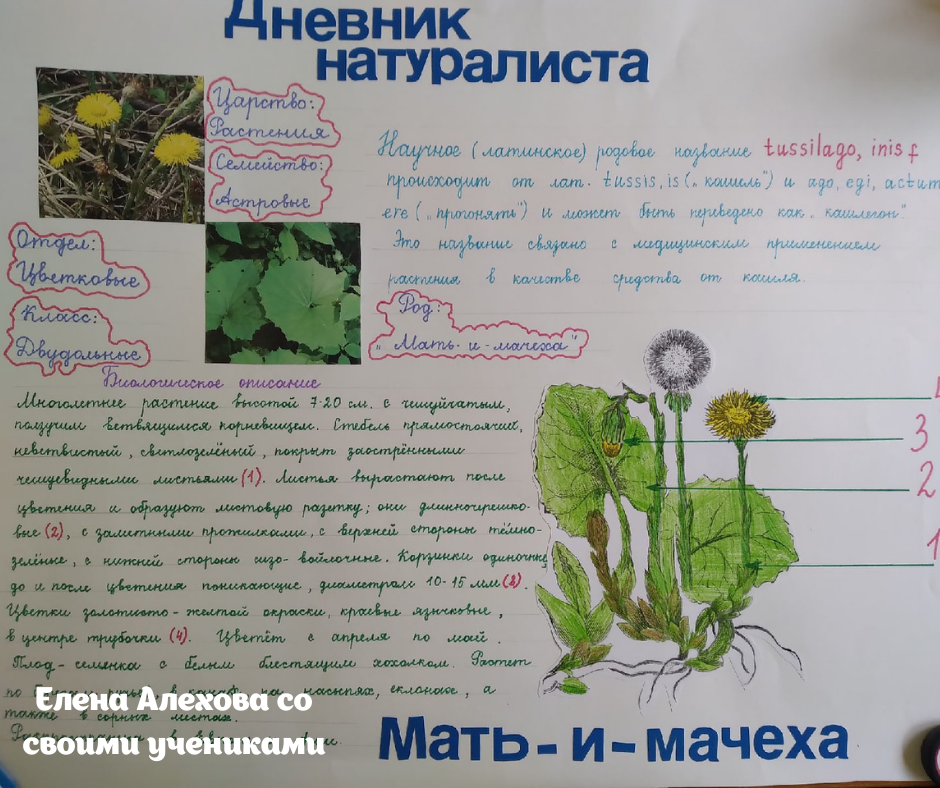 Дневник
натуралиста
Царство:
Растения
Семейство:
Астровые
Отдел:
Цветковые
Класс:
Двудольные
Научное (латинское) родовое название tussilago, inis f
происходит от лат. tussis, is („кашель") и ago, egi, actum
ere („прогонять") и может быть переведено как „кашлегон".
Это название связано с медицинским применением
растения в качестве средства от кашля.
Род:
„Мать-и-мачеха"
Биологическое описание
Многолетнее растение высотой 7-20 см. с чешуйчатым,
ползучим ветвящимся корневищем. Стебель прямостоячий,
неветвистый, светлозелёный, покрыт заострёнными
чешуевидными листьями (1). Листья вырастают после
цветения и образуют листовую разетку; они длинночерешко-
вые (2), с заметными прожилками, с верхней стороны тёмно-
зелёные, с нижней стороны сизо-войлочные. Корзинки одиночные
до и после цветения поникающие, диаметром 10-15 мм (3).
Цветки золотисто-желтой окраски, краевые язычковые,
в центре трубочки (4). Цветёт с апреля по май.
Плод-семенка с белым блестящим хохолком. Растет
по насыпях, склонах, а
также в сорных местах.
3
2
1
Мать-и-мачеха
Елена Алехова со
своими учениками